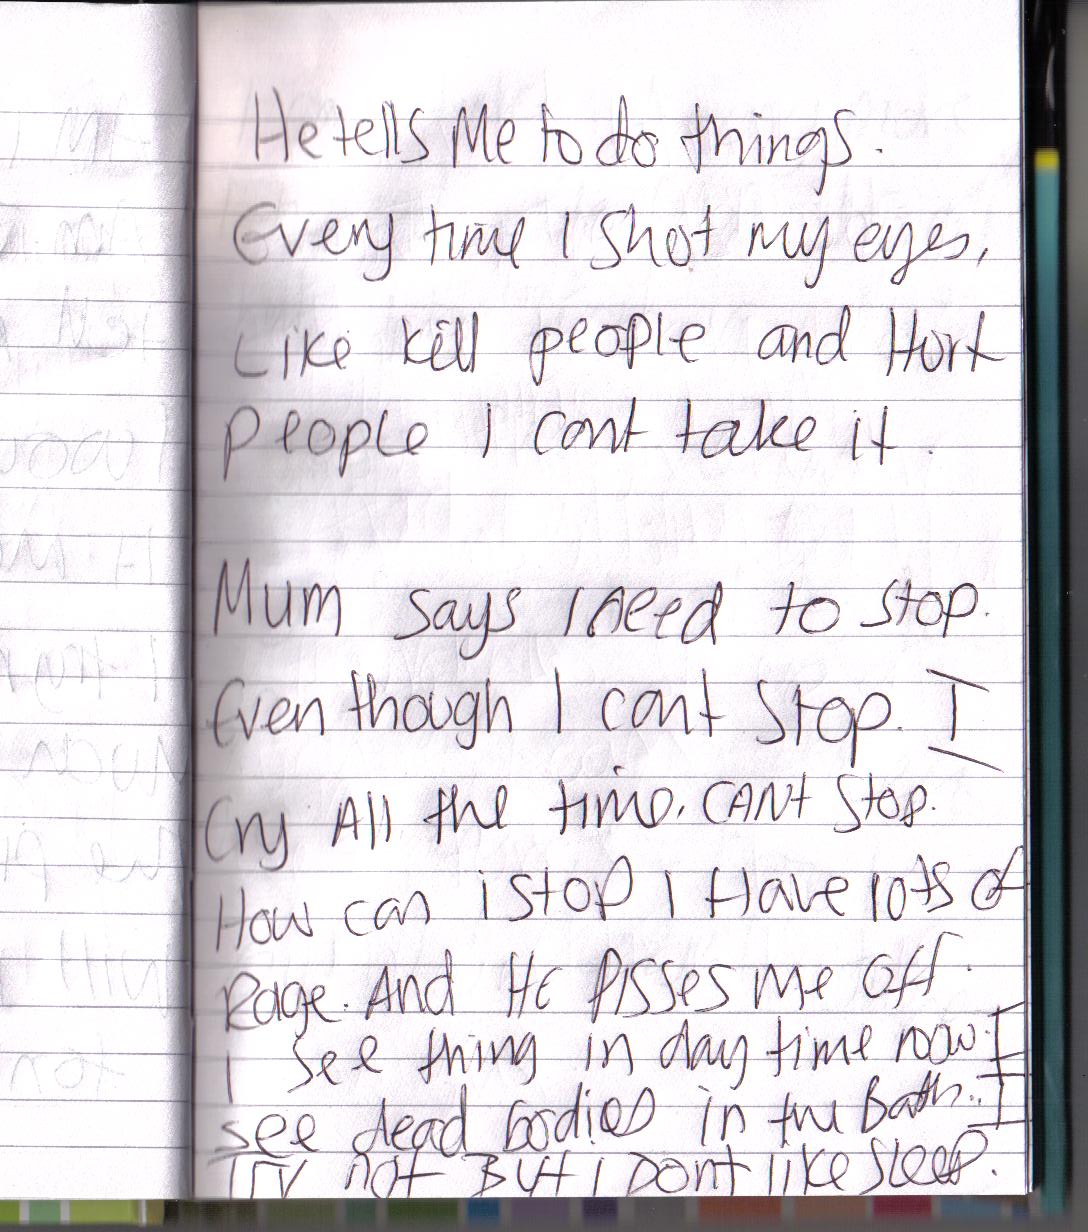 He tells Me to do things.
Every time I shot my eyes,
Like kill people and Hurt
people I cant take it.
Mum says I need to stop.
Even though I cant stop. I
Cry All the time. CANt stop.
How can i stop I Have lots of
Rage. And He PISSES Me Off.
I see thing in day time now. I
see dead bodies in the Bath. I
not But I Dont like sleep.